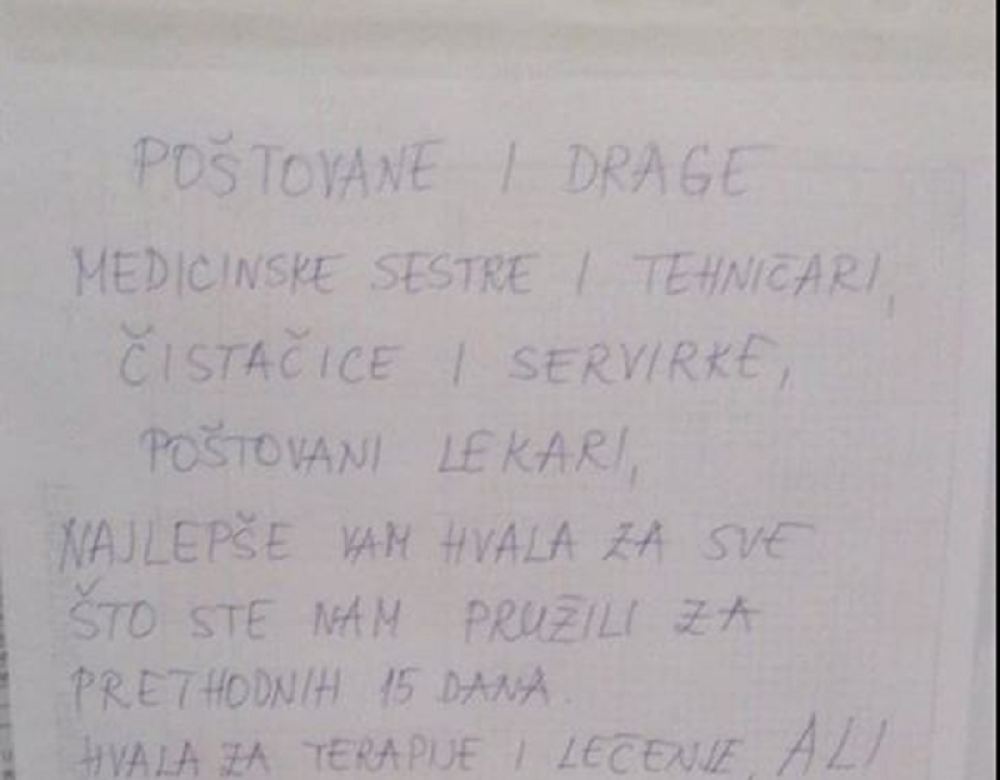 POŠTOVANE I DRAGE
MEDICINSKE SESTRE I TEHNIČARI,
ČISTAČICE I SERVIRKE,
POŠTOVANI LEKARI,
NAJLEPŠE VAM HVALA ZA SVE
ŠTO STE NAM PRUŽILI ZA
PRETHODNIH 15 DANA.
HVALA ZA TERAPIJE I LEČENJE, ALI